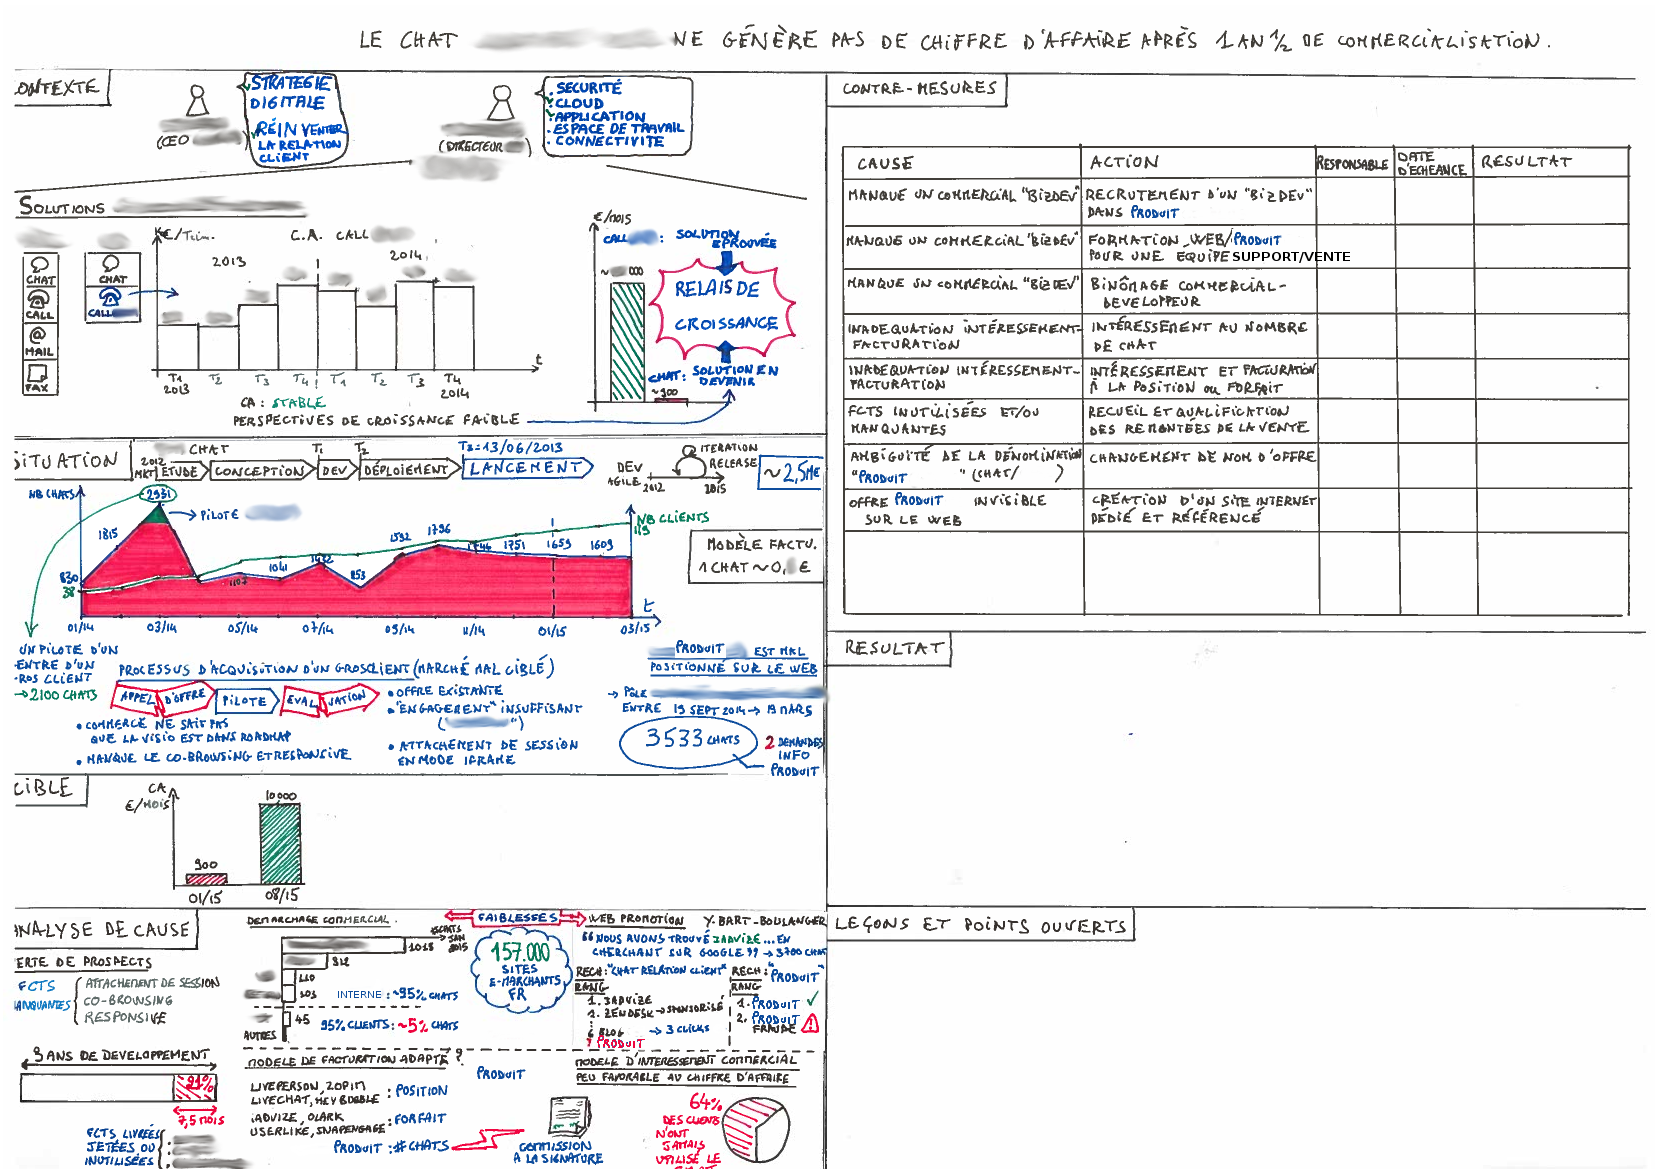 LE CHAT NE GÉNÈRE PAS DE CHIFFRE D'AFFAIRE APRÈS 1 AN 1/2 DE COMMERCIALISATION.
ONTEXTE
(CEO )
STRATEGIE
DIGITALE
RÉINVENTER
LA RELATION
CLIENT
(DIRECTEUR )
. SECURITÉ
. CLOUD
. APPLICATION
. ESPACE DE TRAVAIL
. CONNECTIVITE
SOLUTIONS
CHAT
CALL
@
MAIL
FAX
CHAT
CALL
K€/Trim.
C.A. CALL
2013
2014
T1 T2 T3 T4 T1 T2 T3 T4
2013
2014
t
CA : STABLE
PERSPECTIVES DE CROISSANCE FAIBLE
€/MOIS
CALL : SOLUTION
EPROUVÉE
~ 000
RELAIS DE
CROISSANCE
CHAT : SOLUTION EN
DEVENIR
~900
SITUATION
CHAT
2012
MKT ETUDE CONCEPTION DEV DÉPLOIEMENT LANCEMENT
T1 T2 T3=13/06/2013
DEV
AGILE
2012
2015
ITERATION
RELEASE
~2,5M€
NB CHATS
2931
PILOTE
1815
830
38
1107
1041
1432
853
1592
1796
1746
1751
1659
1609
NB CLIENTS
119
t
01/14 03/14 05/14 07/14 09/14 11/14 01/15 03/15
MODÈLE FACTU.
1 CHAT ~0, €
UN PILOTE D'UN
ENTRE D'UN
ROS CLIENT
→2100 CHATS
PROCESSUS D'ACQUISITION D'UN GROS CLIENT (MARCHÉ MAL CIBLÉ)
APPEL D'OFFRE PILOTE EVALUATION
• COMMERCE NE SAIT PAS
QUE LA VISIO EST DANS ROADMAP
• MANQUE LE CO-BROWSING ET RESPONSIVE
• OFFRE EXISTANTE
• "ENGAGEMENT" INSUFFISANT
(" ")
• ATTACHEMENT DE SESSION
EN MODE IFRAME
PRODUIT EST MAL
POSITIONNÉ SUR LE WEB
→ PÔLE
ENTRE 19 SEPT 2014→ 19 MARS
3533 CHATS
2 DEMANDES
INFO
PRODUIT
CIBLE
CA
€/MOIS
900
10000
01/15
08/15
ANALYSE DE CAUSE
ERTE DE PROSPECTS
FCTS
MANQUANTES
ATTACHEMENT DE SESSION
CO-BROWSING
RESPONSIVE
3 ANS DE DEVELOPPEMENT
21%
7,5 MOIS
FCTS LIVRÉES
JETÉES OU
INUTILISÉES
DEMARCHAGE COMMERCIAL.
#CHATS
JAN
2015
1018
312
110
103
45
AUTRES
INTERNE : ~95% CHATS
95% CLIENTS : ~5% CHATS
FAIBLESSES
157.000
SITES
E-MARCHANTS
FR
WEB PROMOTION
Y. BART-BOULANGER
"NOUS AVONS TROUVÉ IADVIZE... EN
CHERCHANT SUR GOOGLE" → 3700 CHAT
RECH : "CHAT RELATION CLIENT"
RANG
1. IADVIZE
1. ZENDESK → SPONSORISÉ
6 BLOG → 3 CLICKS
? PRODUIT
RECH : "PRODUIT"
RANG
1. PRODUIT ✓
2. PRODUIT
FRAUDE
MODELE DE FACTURATION ADAPTÉ ?
PRODUIT
LIVEPERSON, ZOPIM
LIVECHAT, HEYBUBBLE : POSITION
IADVIZE, OLARK
USERLIKE, SNAPENGAGE : FORFAIT
PRODUIT : #CHATS
MODELE D'INTERESSEMENT COMMERCIAL
PEU FAVORABLE AU CHIFFRE D'AFFAIRE
COMMISSION
A LA SIGNATURE
64%
DES CLIENTS
N'ONT
JAMAIS
UTILISÉ LE
CONTRE-MESURES
CAUSE ACTION RESPONSABLE DATE D'ECHEANCE RESULTAT
MANQUE UN COMMERCIAL "BIZDEV" RECRUTEMENT D'UN "BIZDEV"
DANS PRODUIT
MANQUE UN COMMERCIAL "BIZDEV" FORMATION WEB/PRODUIT
POUR UNE EQUIPE SUPPORT/VENTE
MANQUE UN COMMERCIAL "BIZDEV" BINÔMAGE COMMERCIAL-
DEVELOPPEUR
INADEQUATION INTÉRESSEMENT- INTÉRESSEMENT AU NOMBRE
FACTURATION DE CHAT
INADEQUATION INTÉRESSEMENT- INTÉRESSEMENT ET FACTURATION
FACTURATION À LA POSITION OU FORFAIT
FCTS INUTILISÉES ET/OU RECUEIL ET QUALIFICATION
MANQUANTES DES REMONTÉES DE LA VENTE
AMBIGUITÉ DE LA DÉNOMINATION CHANGEMENT DE NOM D'OFFRE
"PRODUIT " (CHAT/ )
OFFRE PRODUIT INVISIBLE CRÉATION D'UN SITE INTERNET
SUR LE WEB DÉDIÉ ET RÉFÉRENCÉ
RESULTAT
LEÇONS ET POINTS OUVERTS